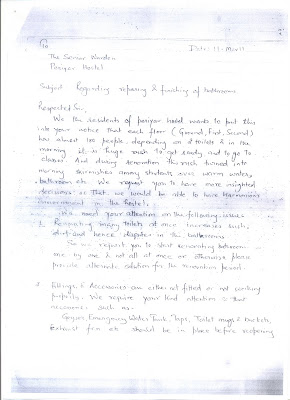 To
Date: 11-Mar-11
The Senior Warden
Periyar Hostel
Subject Regarding repairing & finishing of bathrooms
Respected Sir,
We the residents of periyar hostel wants to put this
into your notice that each floor (Ground, First, Second)
has almost 100 people depending on 8 toilets & in the
morning it is huge rush to get ready and to go to
classes. And during renovation this rush turned into
morning skirmishes among students over warm water,
bathroom etc. We request you to have more insighted
decisions so that we would be able to have harmonious
environment in the hostel.
We need your attention on the following issues
1. Renovating many toilets at once increases such
dirt and hence disputes in the bathrooms
So we request you to start renovating bathroom
one by one & not all at once or otherwise please
provide alternate solution for the renovation period.
2. Fittings & Accessories are either not fitted or not working
properly. We require your kind attention so that
accessories such as-
Geysers, Emergency Water Tank, Taps, Toilet mugs & buckets,
Exhaust fan etc should be in place before reopening